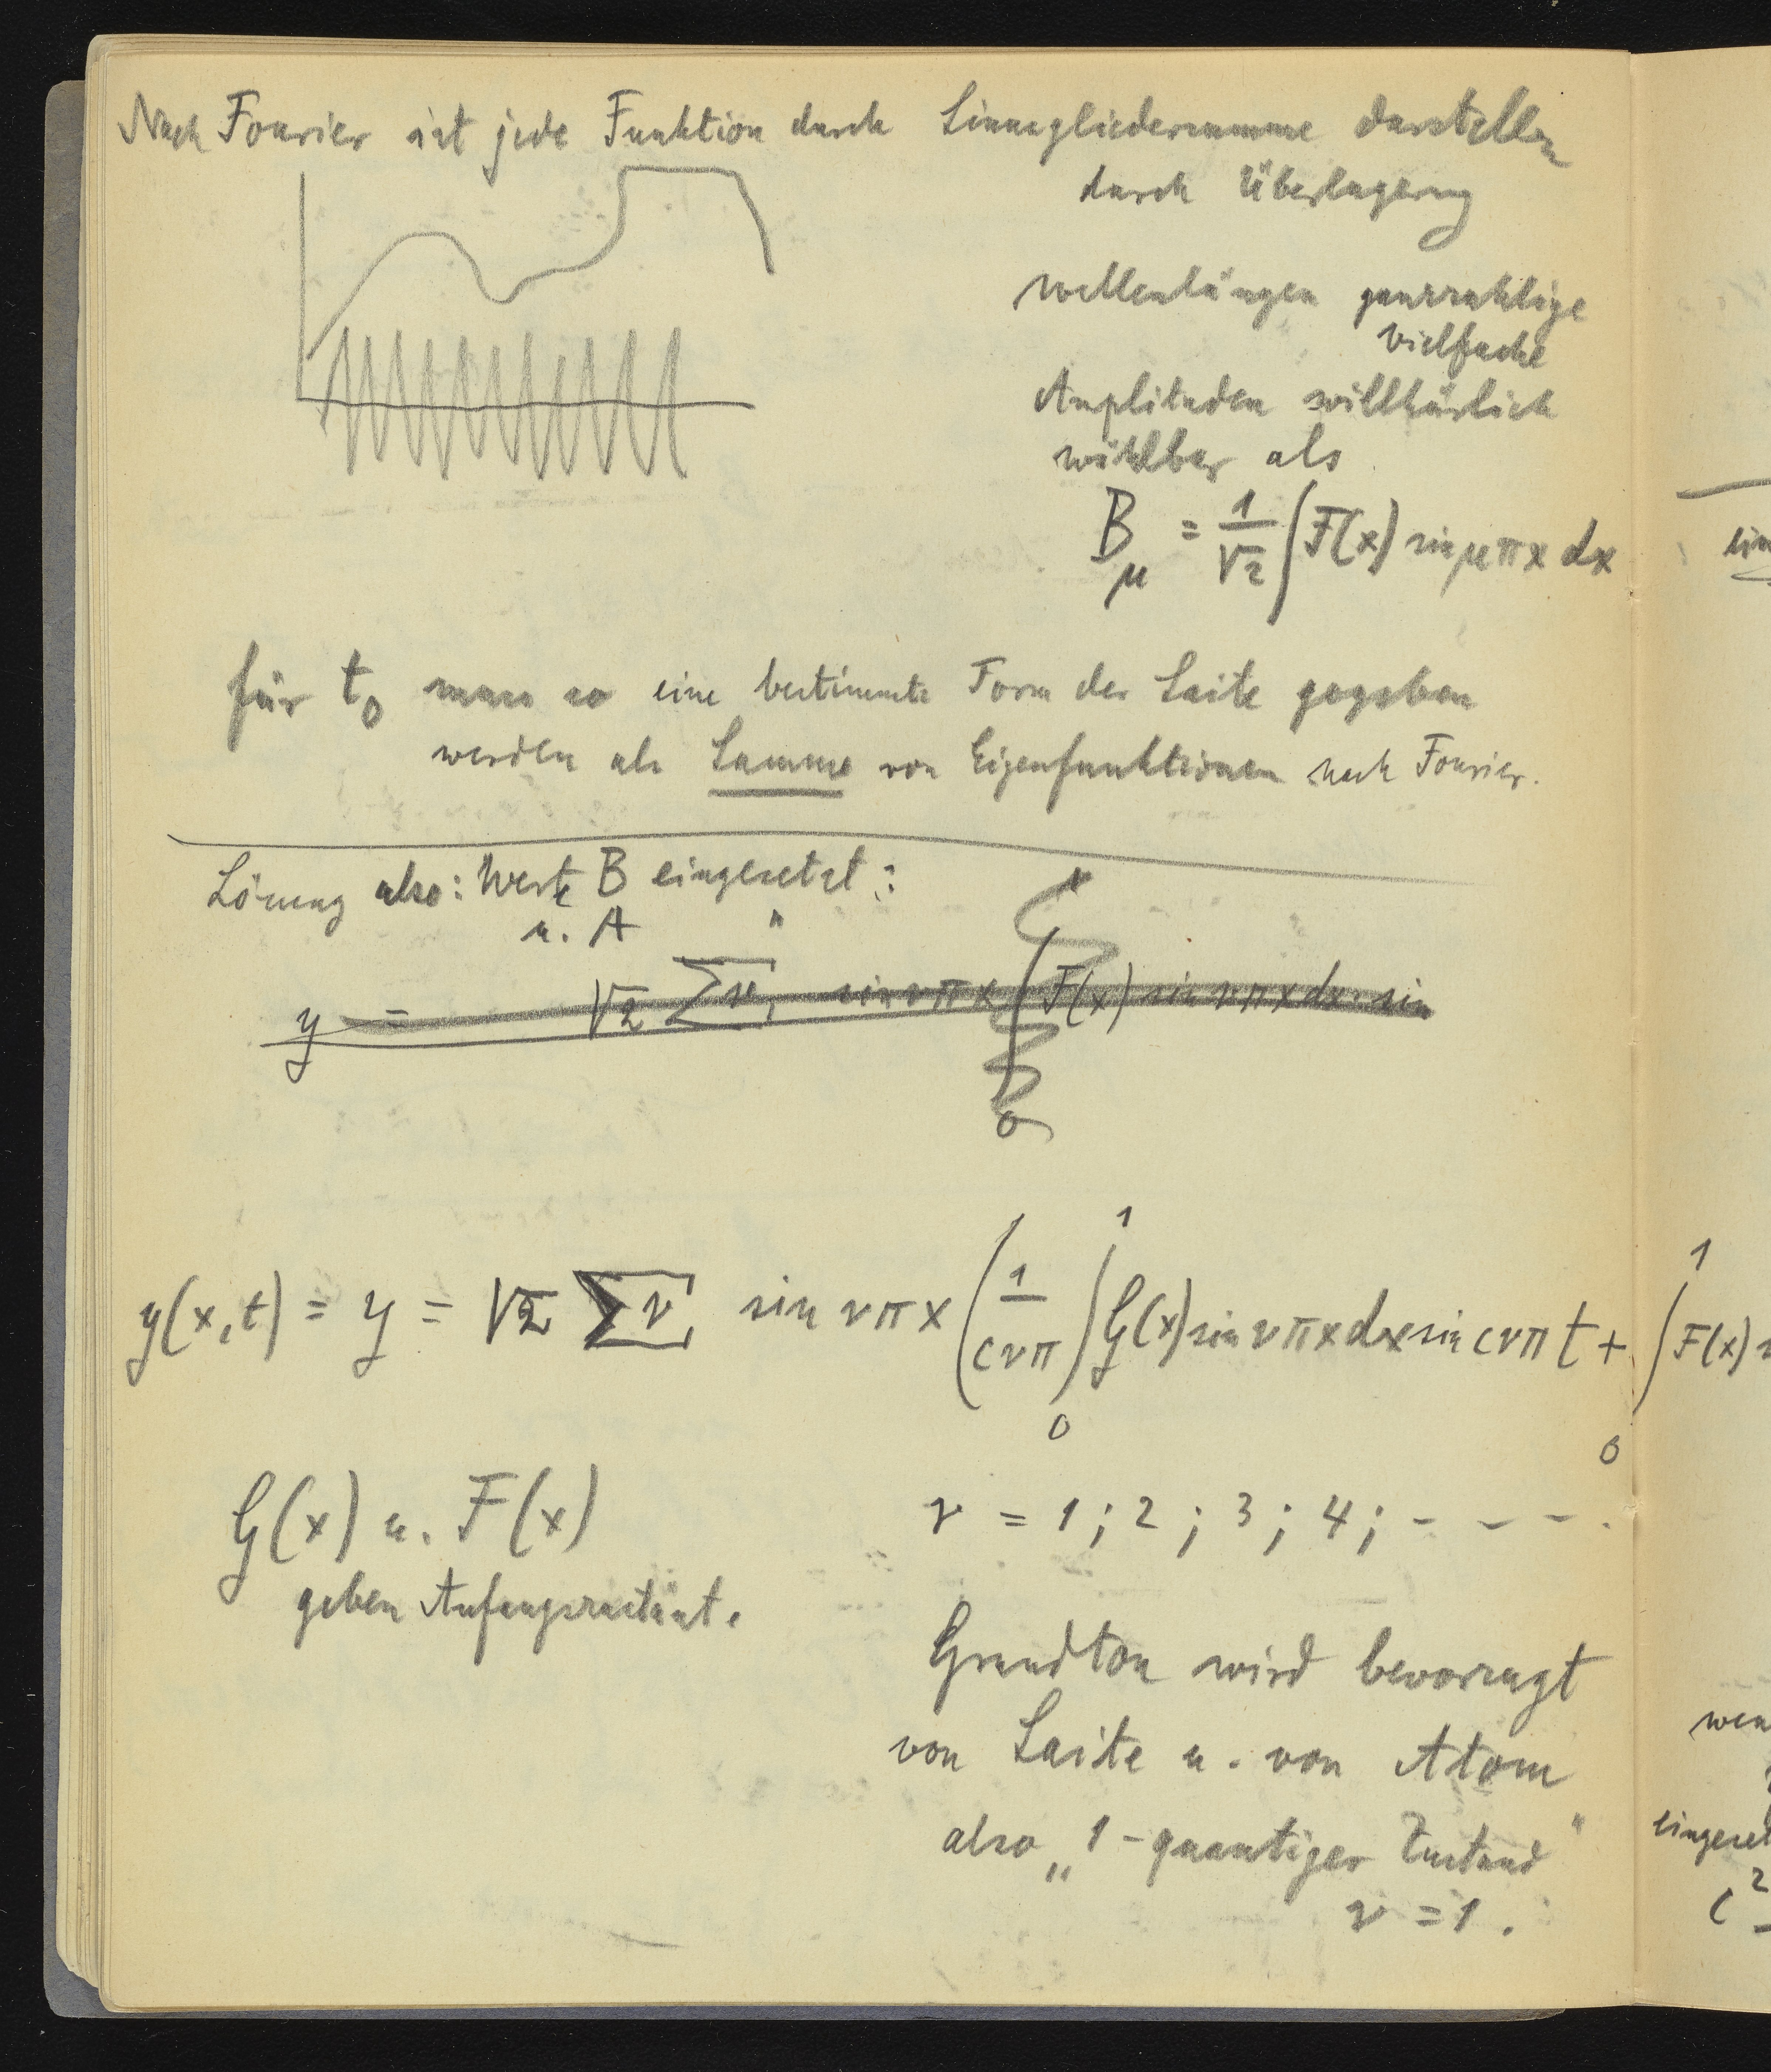 Nach Fourier ist jede Funktion durch Sinusgliedersumme darstellen
durch Überlagerung
Wellenlängen ganzzahlige
vielfache
Amplituden willkürlich
wählbar als
B_μ = 1/√2 ∫ F(x) sin μπx dx
für t₀ muss so eine bestimmte Form der Saite gegeben
werden als Summe von Eigenfunktionen nach Fourier.
Lösung also: Werte B eingesetzt:
u. A "
y = √2 Σν, sin νπx ∫ F(x) sin νπx dx · sin
y(x,t) = y = √2 Σν, sin νπx (1/cνπ ∫₀¹ G(x) sin νπx dx sin cνπ t + ∫₀¹ F(x)
G(x) u. F(x)
geben Anfangszustant.
ν = 1; 2; 3; 4; - - - .
Grundton wird bevorzugt
von Saite u. von Atom
also „1-quantiger Zustand"
ν = 1.